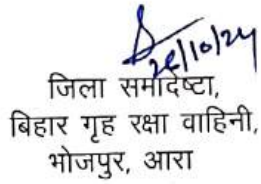 28/10/24
जिला समादेष्टा,
बिहार गृह रक्षा वाहिनी,
भोजपुर, आरा